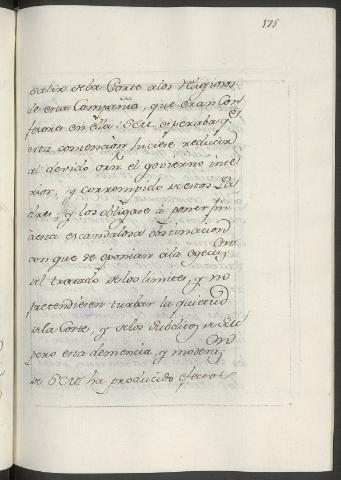 175
salir de la Corte a los Religiosos
de esta Compañia, que eran Con
fesores en ella: S.M. esperaba q.e
esta comencion hiciese reducir
al devido orn. el govierno inte
rior, y corrompido de estos Pa
dres, y los obligase à poner fin
à esta escandalosa obstinacion
con que se oponian a la egecu.on
del tratado de los limites, y no
pretendiesen turbar la quietud
de la Corte, y de los subditos de S.M.
pero esta clemencia, y modera.on
de S.M. ha producido efectos